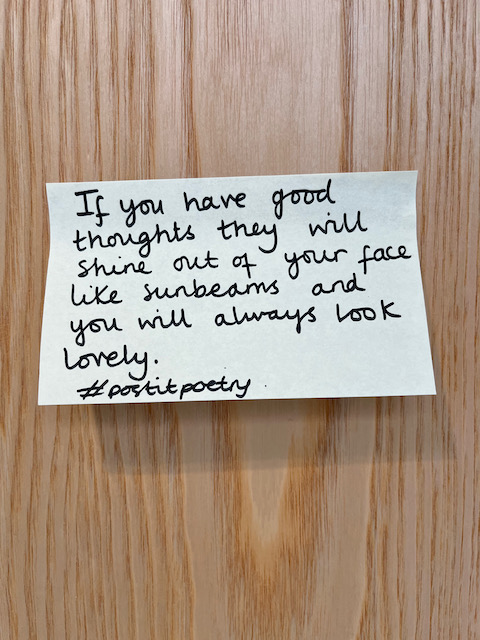 If you have good
thoughts they will
shine out of your face
like sunbeams and
you will always look
lovely.
#postitpoetry